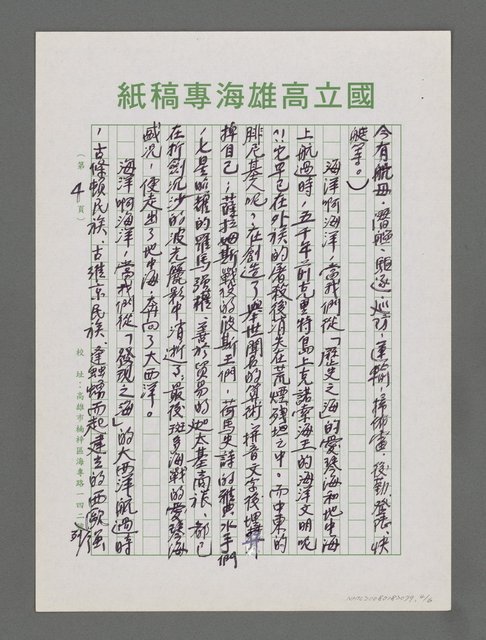 國立高雄海專稿紙
今有航母、潛艇、驅逐、巡防、運輸、掃佈雷、後勤、登陸快
艇等。）
海洋啊海洋，當我們從「歷史之海」的愛琴海和地中海
上航過時，五千年前克里特島上克諾索海王的海洋文明呢
？它早已在外族的屠殺後消失在荒煙殘垣之中。而中東的
腓尼基人呢，在創造了舉世聞名的算術、拼音文字後埋葬
掉自己；薩拉姆斯戰役的波斯王們，荷馬史詩的雅典水手們
，七星照耀的羅馬強權，善於貿易的迦太基商旅，都已
在折劍沉沙的波光麗影中消逝了。最後斑多海戰的愛琴海
盛況，便走出了地中海，奔向了大西洋。
海洋啊海洋，當我們從「發現之海」的大西洋航過時
，古條頓民族、古維京民族、達
而起建立的西歐強
（第 4 頁）
校 址：高雄市楠梓區海專路一四二號
NMTL20080182079. 4/6